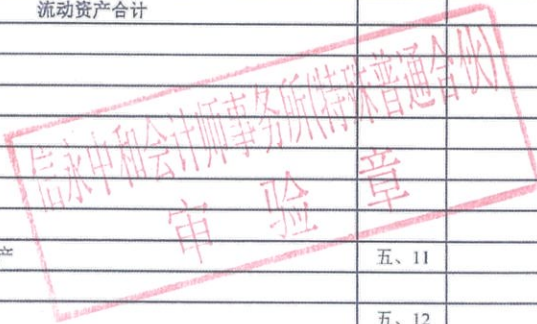 流动资产合计
信永中和会计师事务所(特殊普通合伙)
审验章
产
五、11
五、12